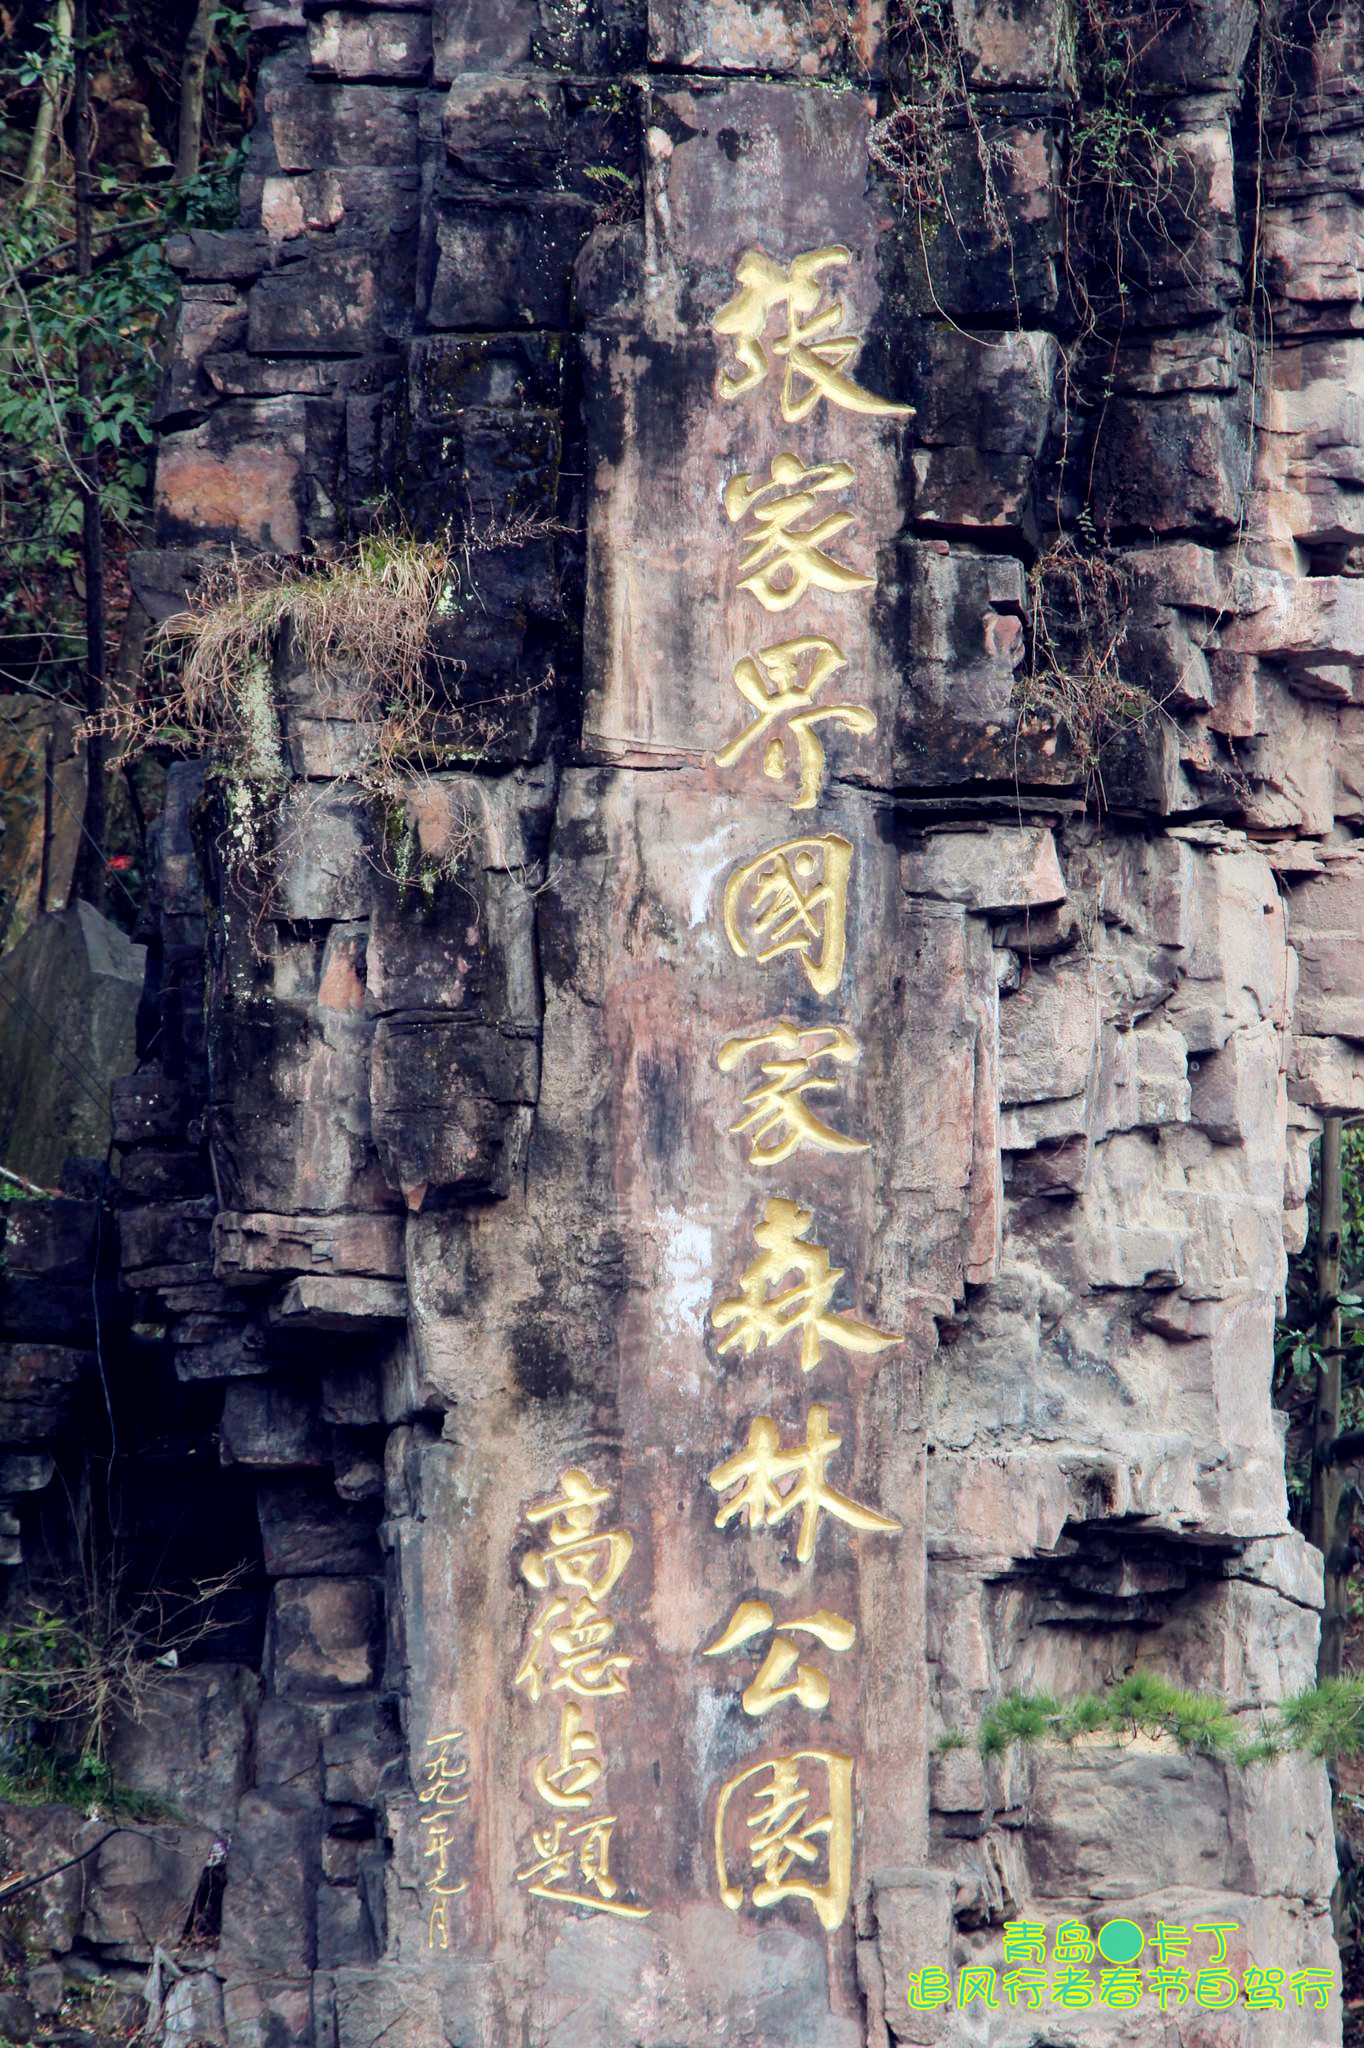 張家界國家森林公園
高德占題
一九九一年元月
青岛●卡丁
追风行者春节自驾行